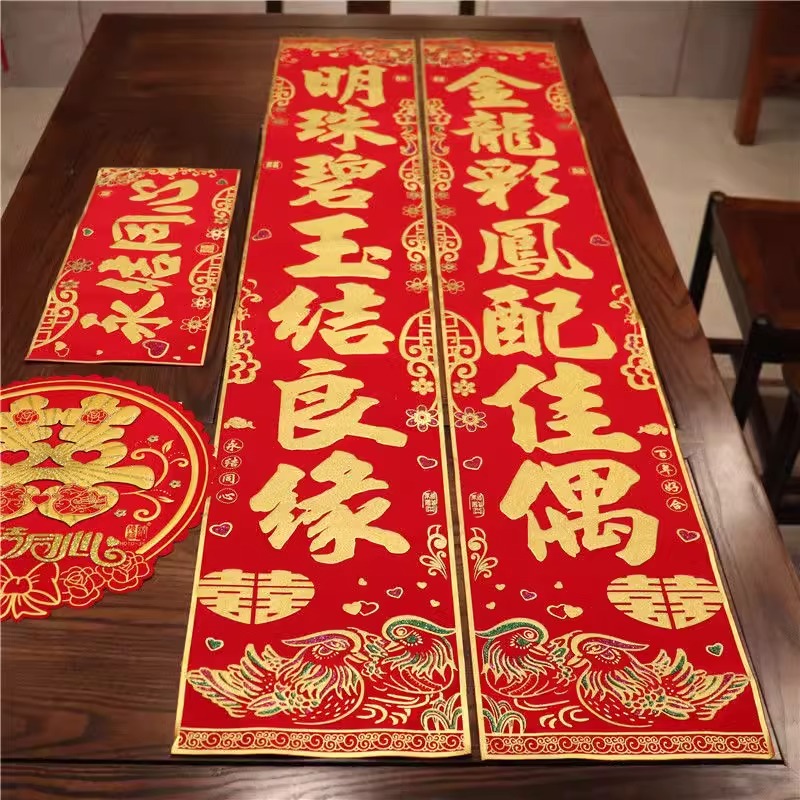 金龍彩鳳配佳偶
百年好合
囍
明珠碧玉结良缘
永结同心
囍
永结同心
囍
同心